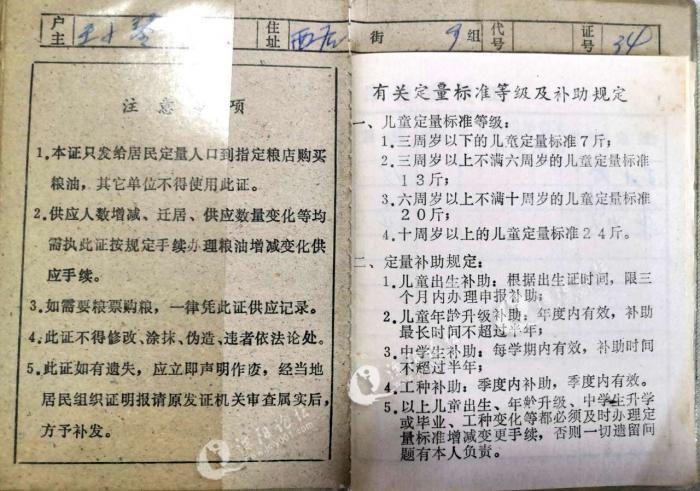 户主 王小琴 住址 西后 街 组 代号 证号 34
注意事项
1.本证只发给居民定量人口到指定粮店购买
粮油，其它单位不得使用此证。
2.供应人数增减、迁居、供应数量变化等均
需执此证按规定手续办理粮油增减变化供
应手续。
3.如需要粮票购粮，一律凭此证供应记录。
4.此证不得修改、涂抹、伪造、违者依法论处。
5.此证如有遗失，应立即声明作废，经当地
居民组织证明报请原发证机关审查属实后，
方予补发。
有关定量标准等级及补助规定
一、儿童定量标准等级：
1.三周岁以下的儿童定量标准7斤；
2.三周岁以上不满六周岁的儿童定量标准
13斤；
3.六周岁以上不满十周岁的儿童定量标准
20斤；
4.十周岁以上的儿童定量标准24斤。
二、定量补助规定：
1.儿童出生补助：根据出生证时间，限三
个月内办理申报补助；
2.儿童年龄升级补助：年度内有效，补助
最长时间不超过半年；
3.中学生补助：每学期内有效，补助时间
不超过半年；
4.工种补助：季度内补助，季度内有效。
5.以上儿童出生、年龄升级、中学生升学
或毕业、工种变化等都必须及时办理定
量标准增减变更手续，否则一切遗留问
题有本人负责。